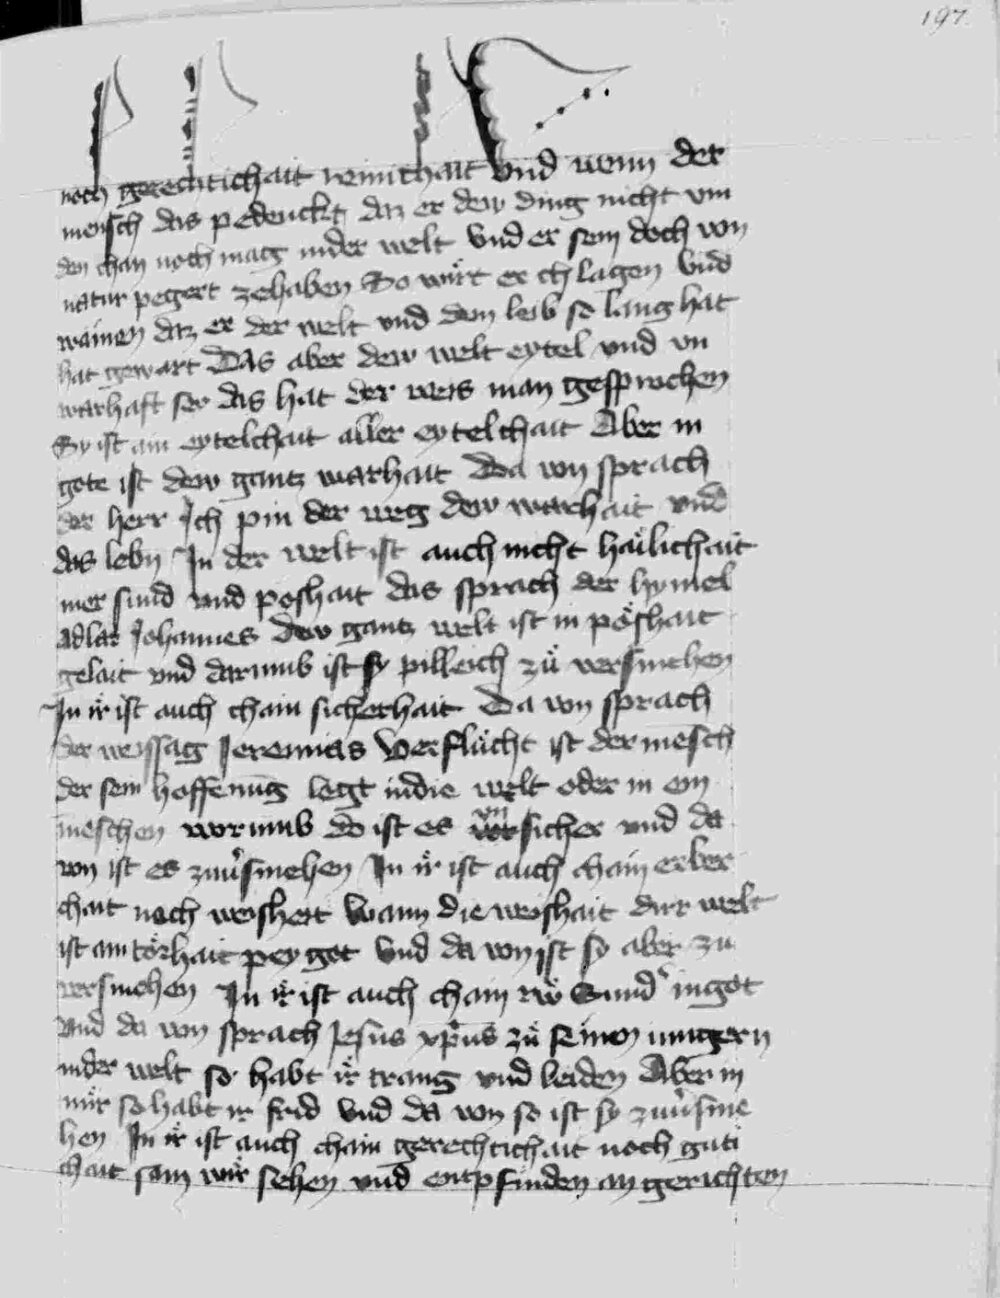 197
noch gerechtichait rainichait Vnd wenn der
mensch das pedenckt daz er dew ding nicht vin
den chan noch mag inder welt Vnd er sew doch von
natur pegert zehaben So wirt er chlagen Vnd
wainen daz er der welt vnd dem leib so lang hat
hat gewart Das aber dew welt eytel vnd vn
warhaft sey das hat der weis man gesprochen
Sy ist ain eytelchait aller eytelchait Aber in
gote ist dew gantz warhait Da von sprach
der herr Ich pin der weg dew warhait vnd
das lebn In der welt ist auch nicht häilichait
mer sund vnd poshait das sprach der hymel
adlar Johannes Dew gantz welt ist in pöshait
gelait vnd darumb ist sy pilleich zů versmehen
In ir ist auch chain sicherhait Da von sprach
der weissag Jeremias Verflücht ist der mesch
der sein hoffenug legt indie welt oder in ein
meschen worumb do ist es vnsicher vnd da
von ist es zuu'smehen In ir ist auch chain erber
chait noch weisheit Wann die weishait dirr welt
ist ain törhait pey got Vnd da von ist sy aber zu
versmehen In ir ist auch chain rw Sund' ingot
Vnd da von sprach Jesus xpus zů seinen iungern
inder welt so habt ir trang vnd leiden Aber in
mir so habt ir frid Vnd da von so ist sy zuu'sme
hen In ir ist auch chain gerechtichait noch güti
chait sam wir sehen vnd entpfinden an gerichten